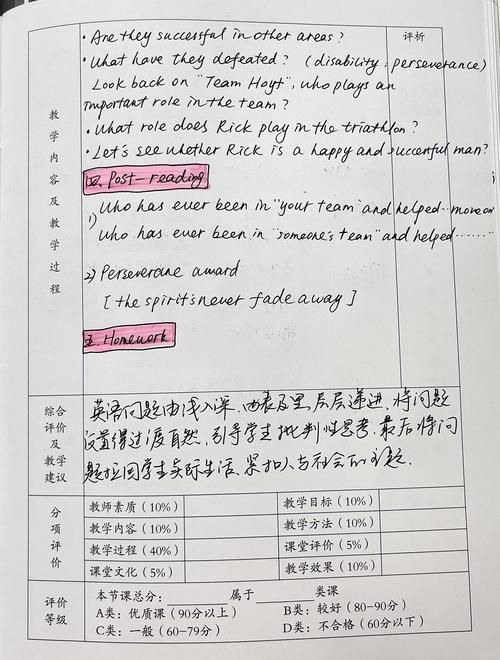 评析
• Are they successful in other areas?
• What have they defeated? (disability; perseverance)
Look back on "Team Hoyt", who plays an
important role in the team?
• What role does Rick play in the triathlon?
• Let's see whether Rick is a happy and successful man?
四、Post-reading
1) Who has ever been in "your team" and helped…move on
Who has ever been in "someone's team" and helped……"
2) Perseverance award
[the spirit's never fade away]
五、Homework
教学内容及教学过程
综合评价及教学建议
英语问题由浅入深、由表及里,层层递进,将问题
设置得过渡自然,引导学生批判性思考,最后将问
题拉回学生实际生活,紧扣人与社会的主题.
分项评价
教师素质(10%) 教学目标(10%)
教学内容(10%) 教学方法(10%)
教学过程(40%) 课堂评价(5%)
课堂文化(5%) 教学效果(10%)
评价等级
本节课总分: 属于______类课
A类:优质课(90分以上) B类:较好(80-90分)
C类:一般(60-79分) D类:不合格(60分以下)